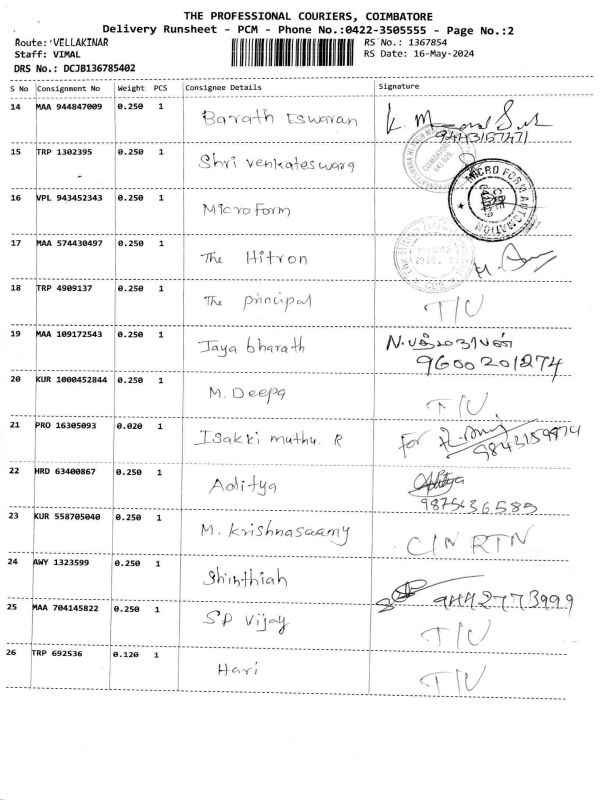 THE PROFESSIONAL COURIERS, COIMBATORE
Delivery Runsheet - PCM - Phone No.:0422-3505555 - Page No.:2
Route: VELLAKINAR
RS No.: 1367854
Staff: VIMAL
RS Date: 16-May-2024
DRS No.: DCJB136785402
S No Consignment No Weight PCS Consignee Details Signature
14 MAA 944847009 0.250 1 Barath Eswaran K. M
9443157471
15 TRP 1302395 0.250 1 Shri venkateswara
16 VPL 943452343 0.250 1 Micro Form MICRO FORM AUTOMATION
17 MAA 574430497 0.250 1 The Hitron
18 TRP 4909137 0.250 1 The principal T/U
19 MAA 109172543 0.250 1 Jaya bharath N. பத்மநாபன்
9600201274
20 KUR 1000452844 0.250 1 M. Deepa T/U
21 PRO 16305093 0.020 1 Isakki muthu. R for
9843159874
22 HRD 63400867 0.250 1 Aditya Aditya
9875636585
23 KUR 558705040 0.250 1 M. Krishnasaamy C/N RTN
24 AWY 1323599 0.250 1 Shinthiah 9442773999
25 MAA 704145822 0.250 1 S.P Vijay T/U
26 TRP 692536 0.120 1 Hari T/U